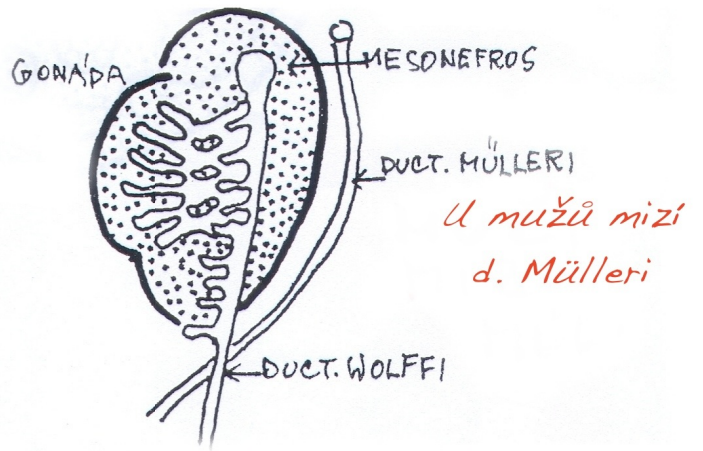 GONÁDA
MESONEFROS
DUCT. MÜLLERI
U mužů mizí
d. Mülleri
DUCT. WOLFFI